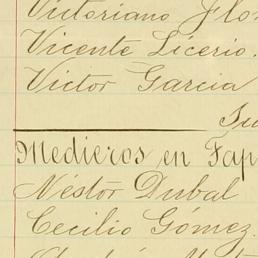 Victoriano Flo
Vicente Licerio.
Victor Garcia
Su
Medieros en Tap
Néstor Dubal
Cecilio Gómez.